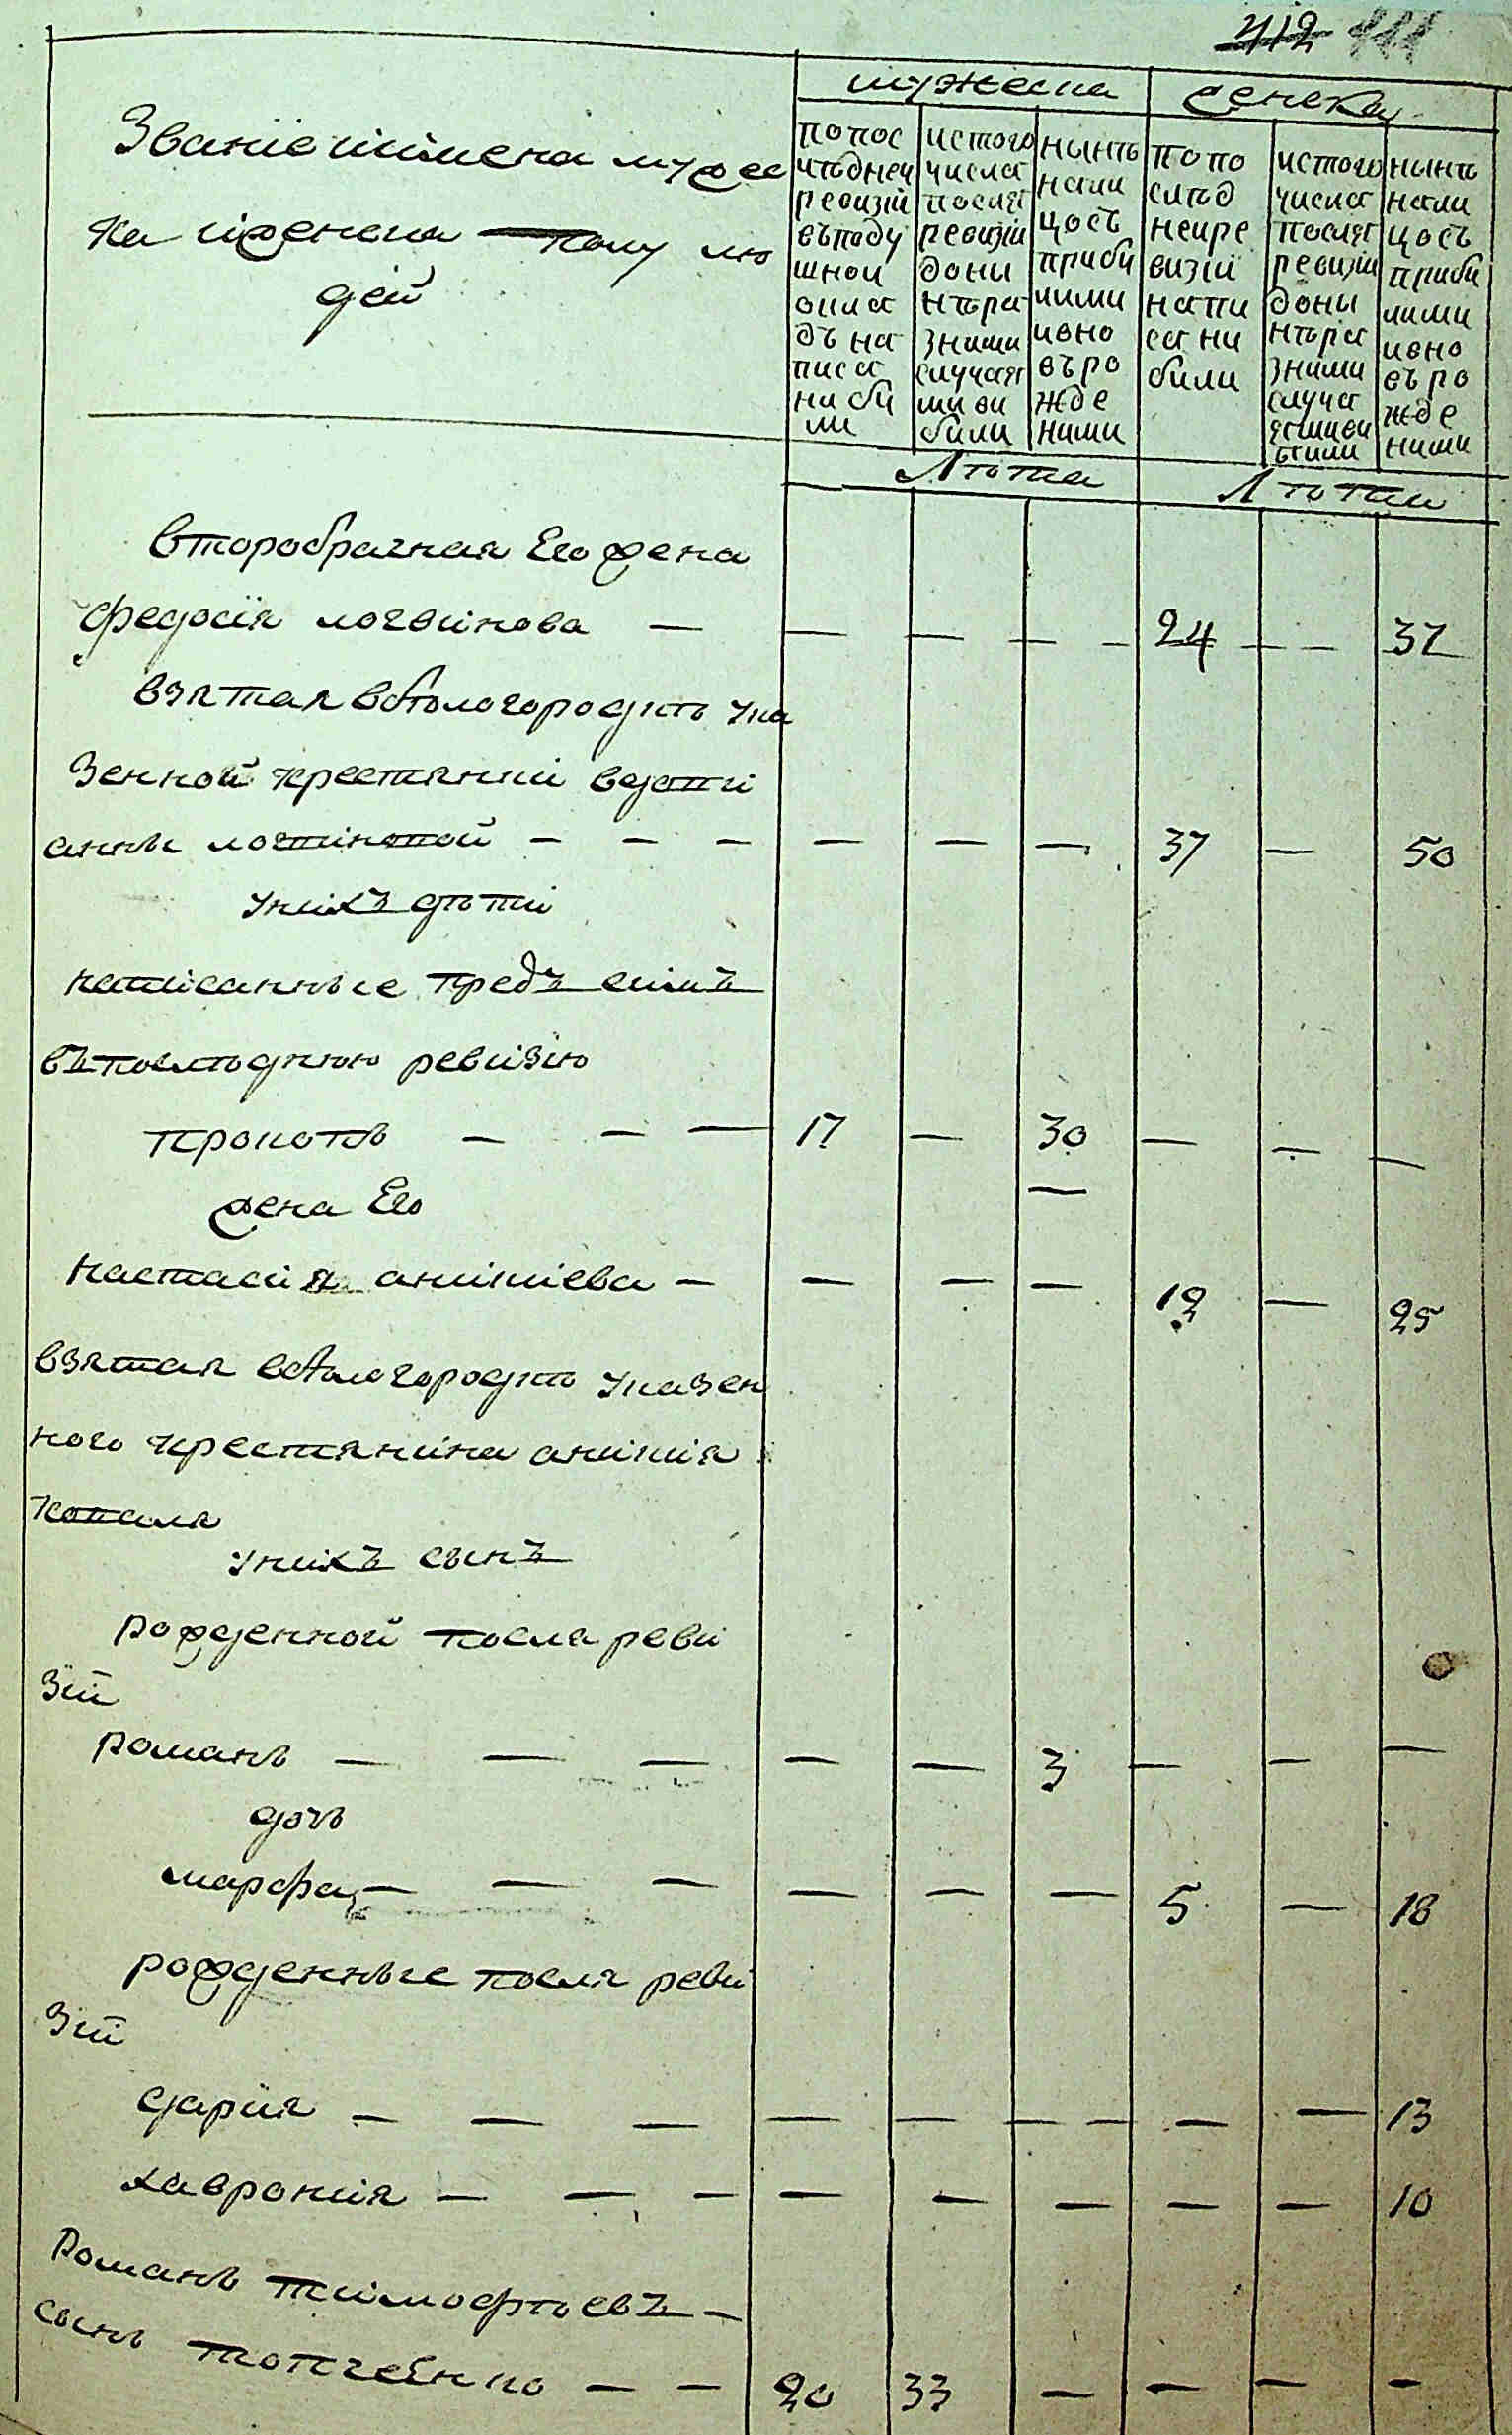 412 411
мужеска женска
Званіе иимена мужес
ка иженска полу лю
дей
попос
лѣдней
ревизіи
въподу
шной
окла
дъ на
писа
ни бы
ли
истого
числа
послѣ
ревизіи
доны
нѣра
зними
случая
ми вы
были
нынѣ
нали
цось
прибы
лими
ивно
въро
жде
ними
попо
слѣд
ней ре
визіи
напи
са ни
были
истого
числа
послѣ
ревизіи
доны
нѣра
зними
случа
ями вы
были
нынѣ
нали
цось
прибы
лими
ивно
въ ро
жде
ними
Лѣта Лѣта
второбрачная Его жена
федосія логвинова — — — — — 24 — — 37
взятая вбѣлогородкѣ ука
зенной крестянки вдови
анны логвиновой — — — — — — 37 — 50
унихъ дѣти
написанные предъ симъ
въпослѣднюю ревизію
прокопъ — — — 17 — 30 — — —
жена Его —
настасия анипіева — — — — 12 — 25
взятая вбѣлогородкѣ указен
ного крестянина анипия
коваля
унихъ сынъ
рожденной после реви
зіи
романъ — — — — — 3 — — —
дочь
марфа — — — — — — 5 — 18
рожденные после реви
зіи
дария — — — — — — — — — 13
хаврония — — — — — — — — 10
Романъ тимофѣевъ —
сынъ — — 20 33 — — — —